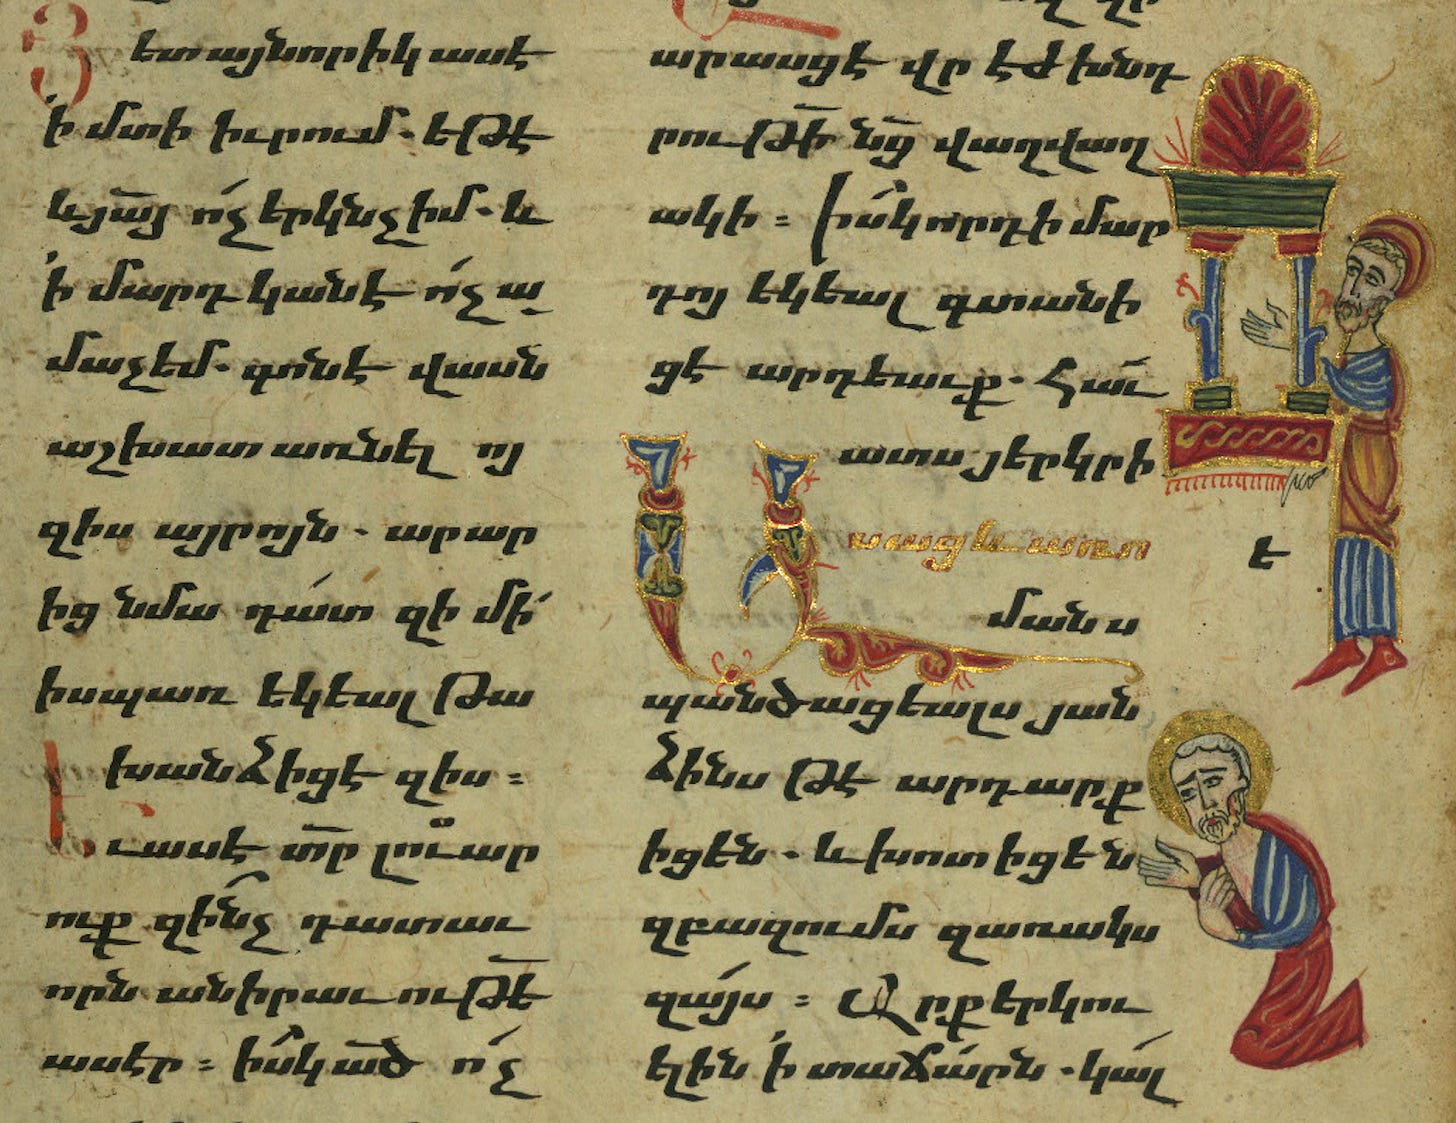 Յետ այնորիկ ասէ
՛ի մտի իւրում. եթէ
և յա՟յ ո՛չ երկնչիմ. և
՛ի մարդկանէ ո՛չ ա
մաչեմ. գոնէ վասն
աշխատ առնել ոյ
զիս այրոյն. արար
ից նմա դա՛տ զի մի՛
իսպառ եկեալ թա
խանձիցէ զիս ։
Եւ ասէ տ՟ր լուար
ուք զի՞նչ դատաւ
որն անիրաւութե՟
ասէր ։ ի՞սկ ա՟ծ ո՛չ
արասցէ վրէժխնդ
րութի՟ նց՟ վաղվաղ
ակի ։ Ի՞սկ որդի մար
դոյ եկեալ գտանի
ցէ արդեաւք. Հաւ
ատս յերկրի
Ասաց և առ ո
մանս
պանծացեալս յան
ձինս թէ արդարք
իցեն. և խոտիցեն
զբազումս զառակս
զա՛յս ։ Արք երկու
ելին ՛ի տաճա՛րն. կա՛լ